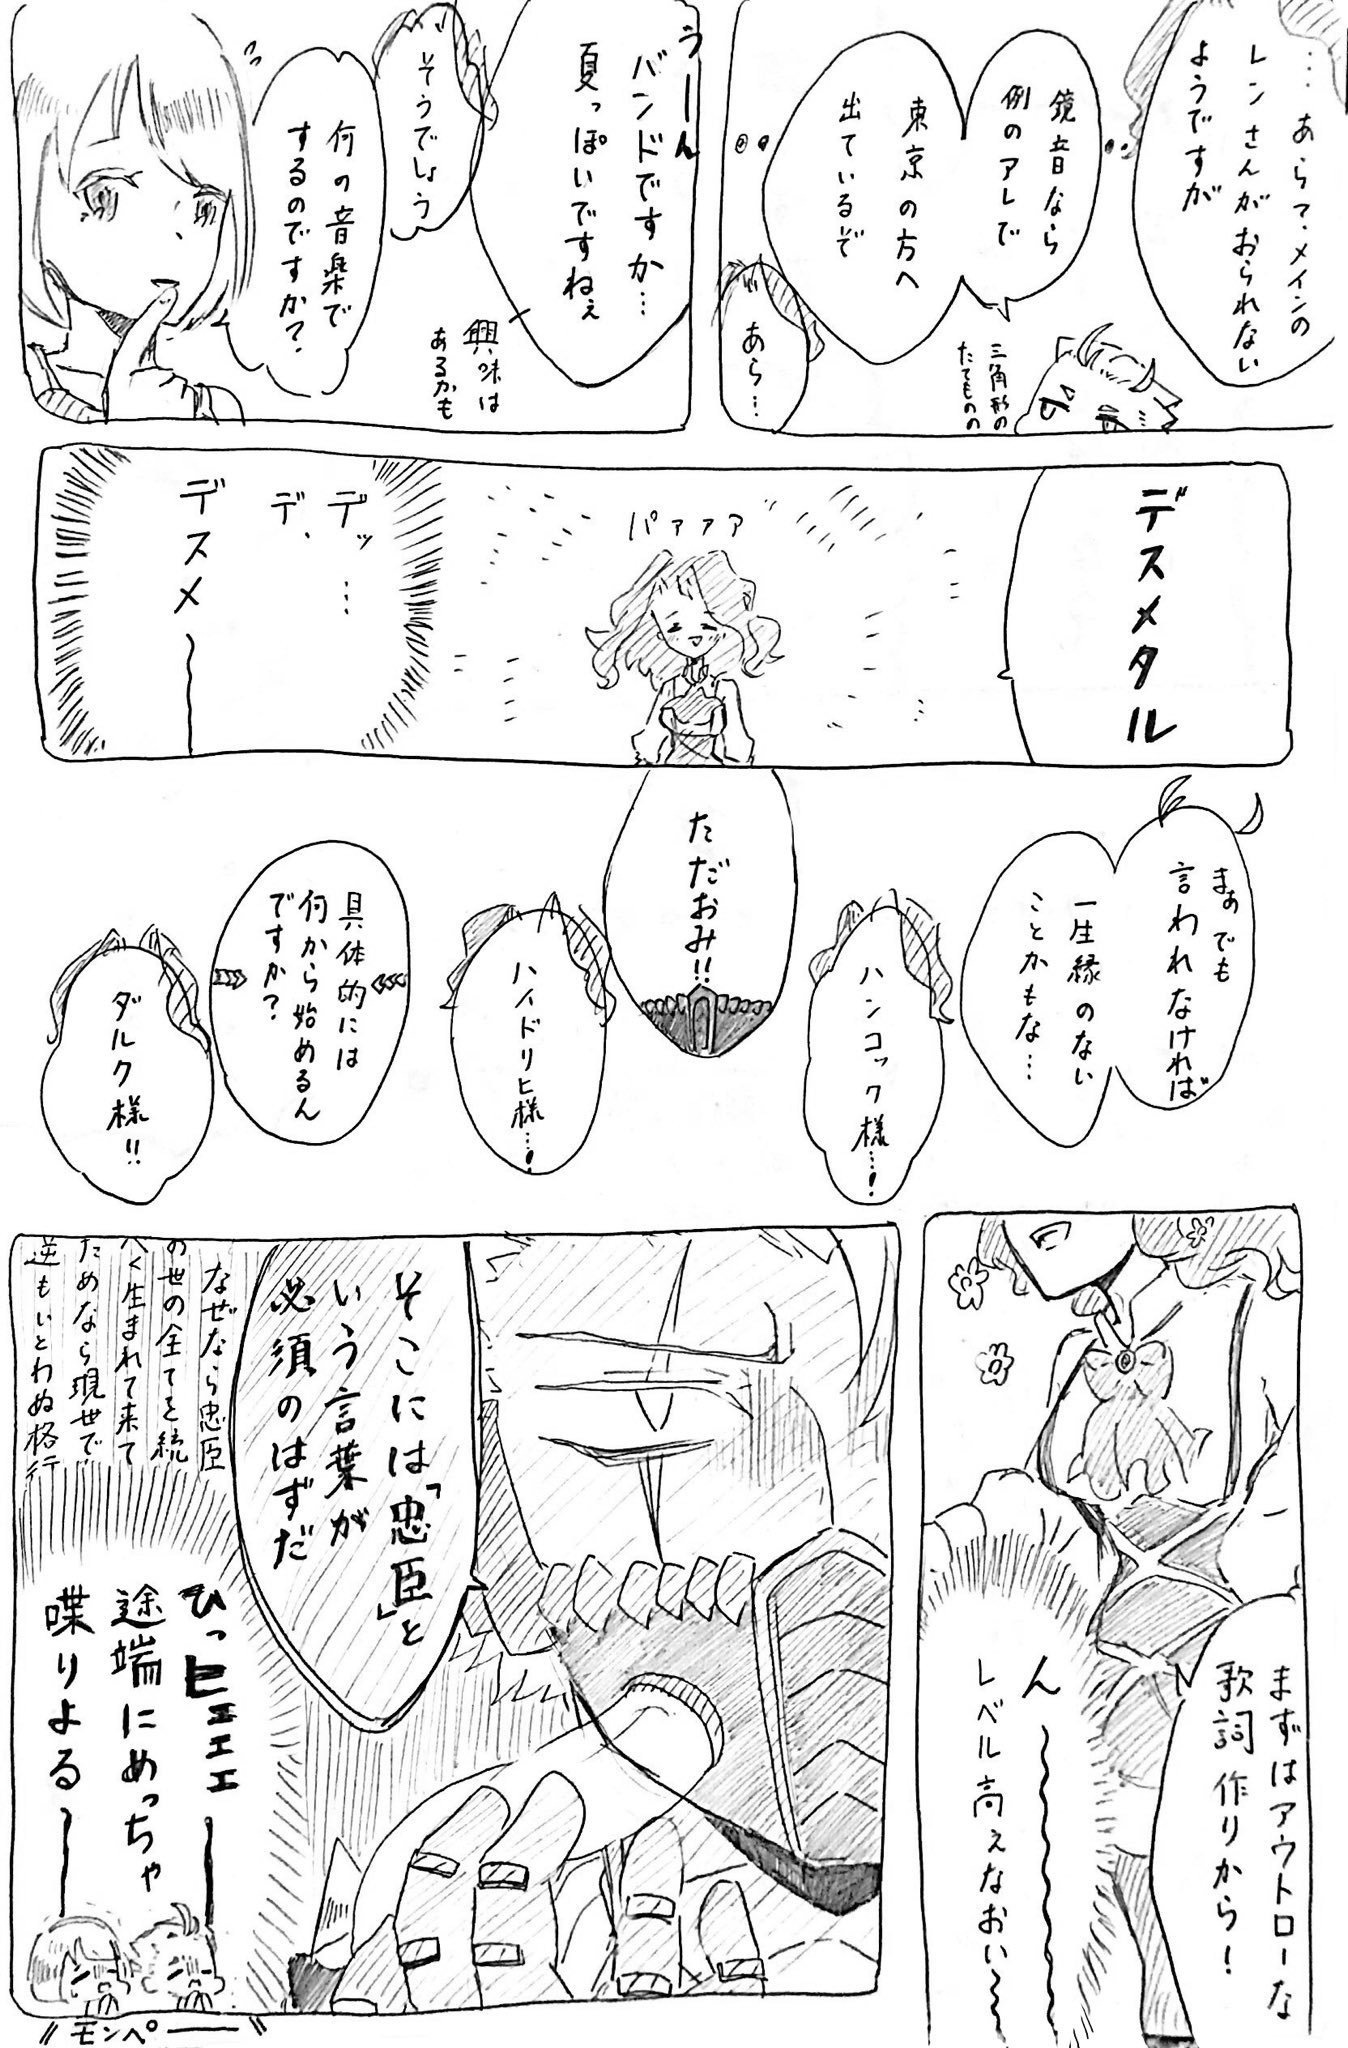 …あらて、メインの
レンさんがおられない
ようですが
鏡音なら
例のアレで
東京の方へ
出ているぞ
三角形の
たてものの
あら…
うーん
バンドですか…
夏っぽいですねぇ
興味は
あるかも
そうでしょう
何の音楽で
するのですか?
デスメタル
パァァァ
デッ…
デ、
デスメ〜
まぁでも
言われなければ
一生縁のない
ことかもな…
ハンコック様…!
ただおみ!!
ハイドリヒ様…!
具体的には
何から始めるん
ですか?
ダルク様!!
まずはアウトローな
歌詞作りから!
ん〜
レベル高ぇなおい〜
そこには「忠臣」と
いう言葉が
必須のはずだ
なぜなら忠臣
の世の全てを統
べく生まれて来て
ためなら現世で
逆もいとわぬ格行
ひっヒェェェー
途端にめっちゃ
喋りよるー
〃モンペー〃